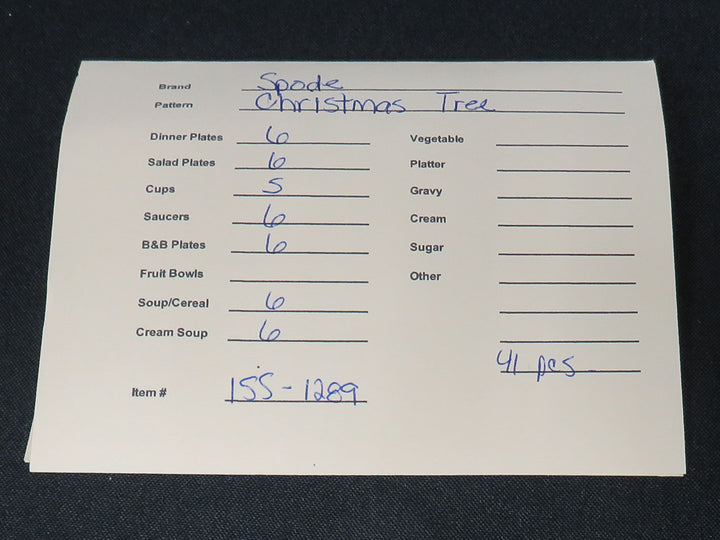 Brand Spode
Pattern Christmas Tree
Dinner Plates 6
Salad Plates 6
Cups 5
Saucers 6
B&B Plates 6
Fruit Bowls
Soup/Cereal 6
Cream Soup 6
Item # 155-1289
Vegetable
Platter
Gravy
Cream
Sugar
Other
41 pcs